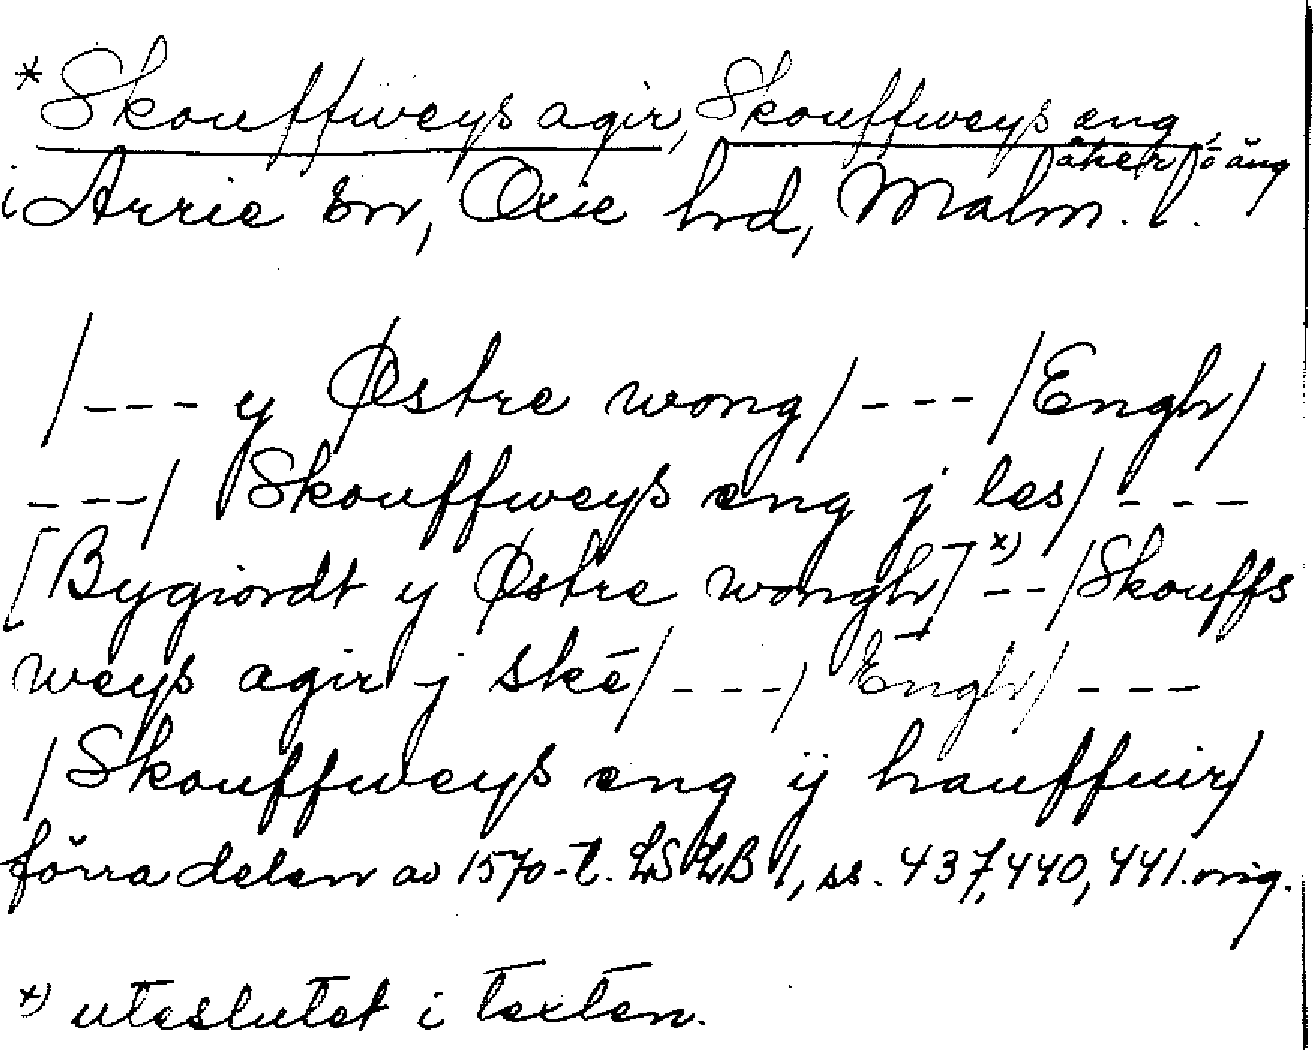 * Skouffweys agir, Skouffweys eng,
åker o äng
i Arrie sn, Oxie hrd, Malm. l.
/--- y Østre wong/ --- /Engh/
---/ Skouffweys eng j les/ ---
[Bygiordt y Østre wongh] *) --/Skouffs
weys agir j ske/ ---/ Engh/ ---
/Skouffweys eng ij hauffuir/
förra delen av 1570-t. LSLB 1, ss. 437, 440, 441. orig.
*) uteslutet i texten.